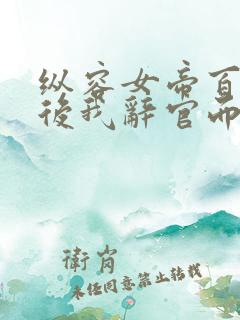 纵容女帝百
后我辭官而
衛肖
未经同意禁止转载